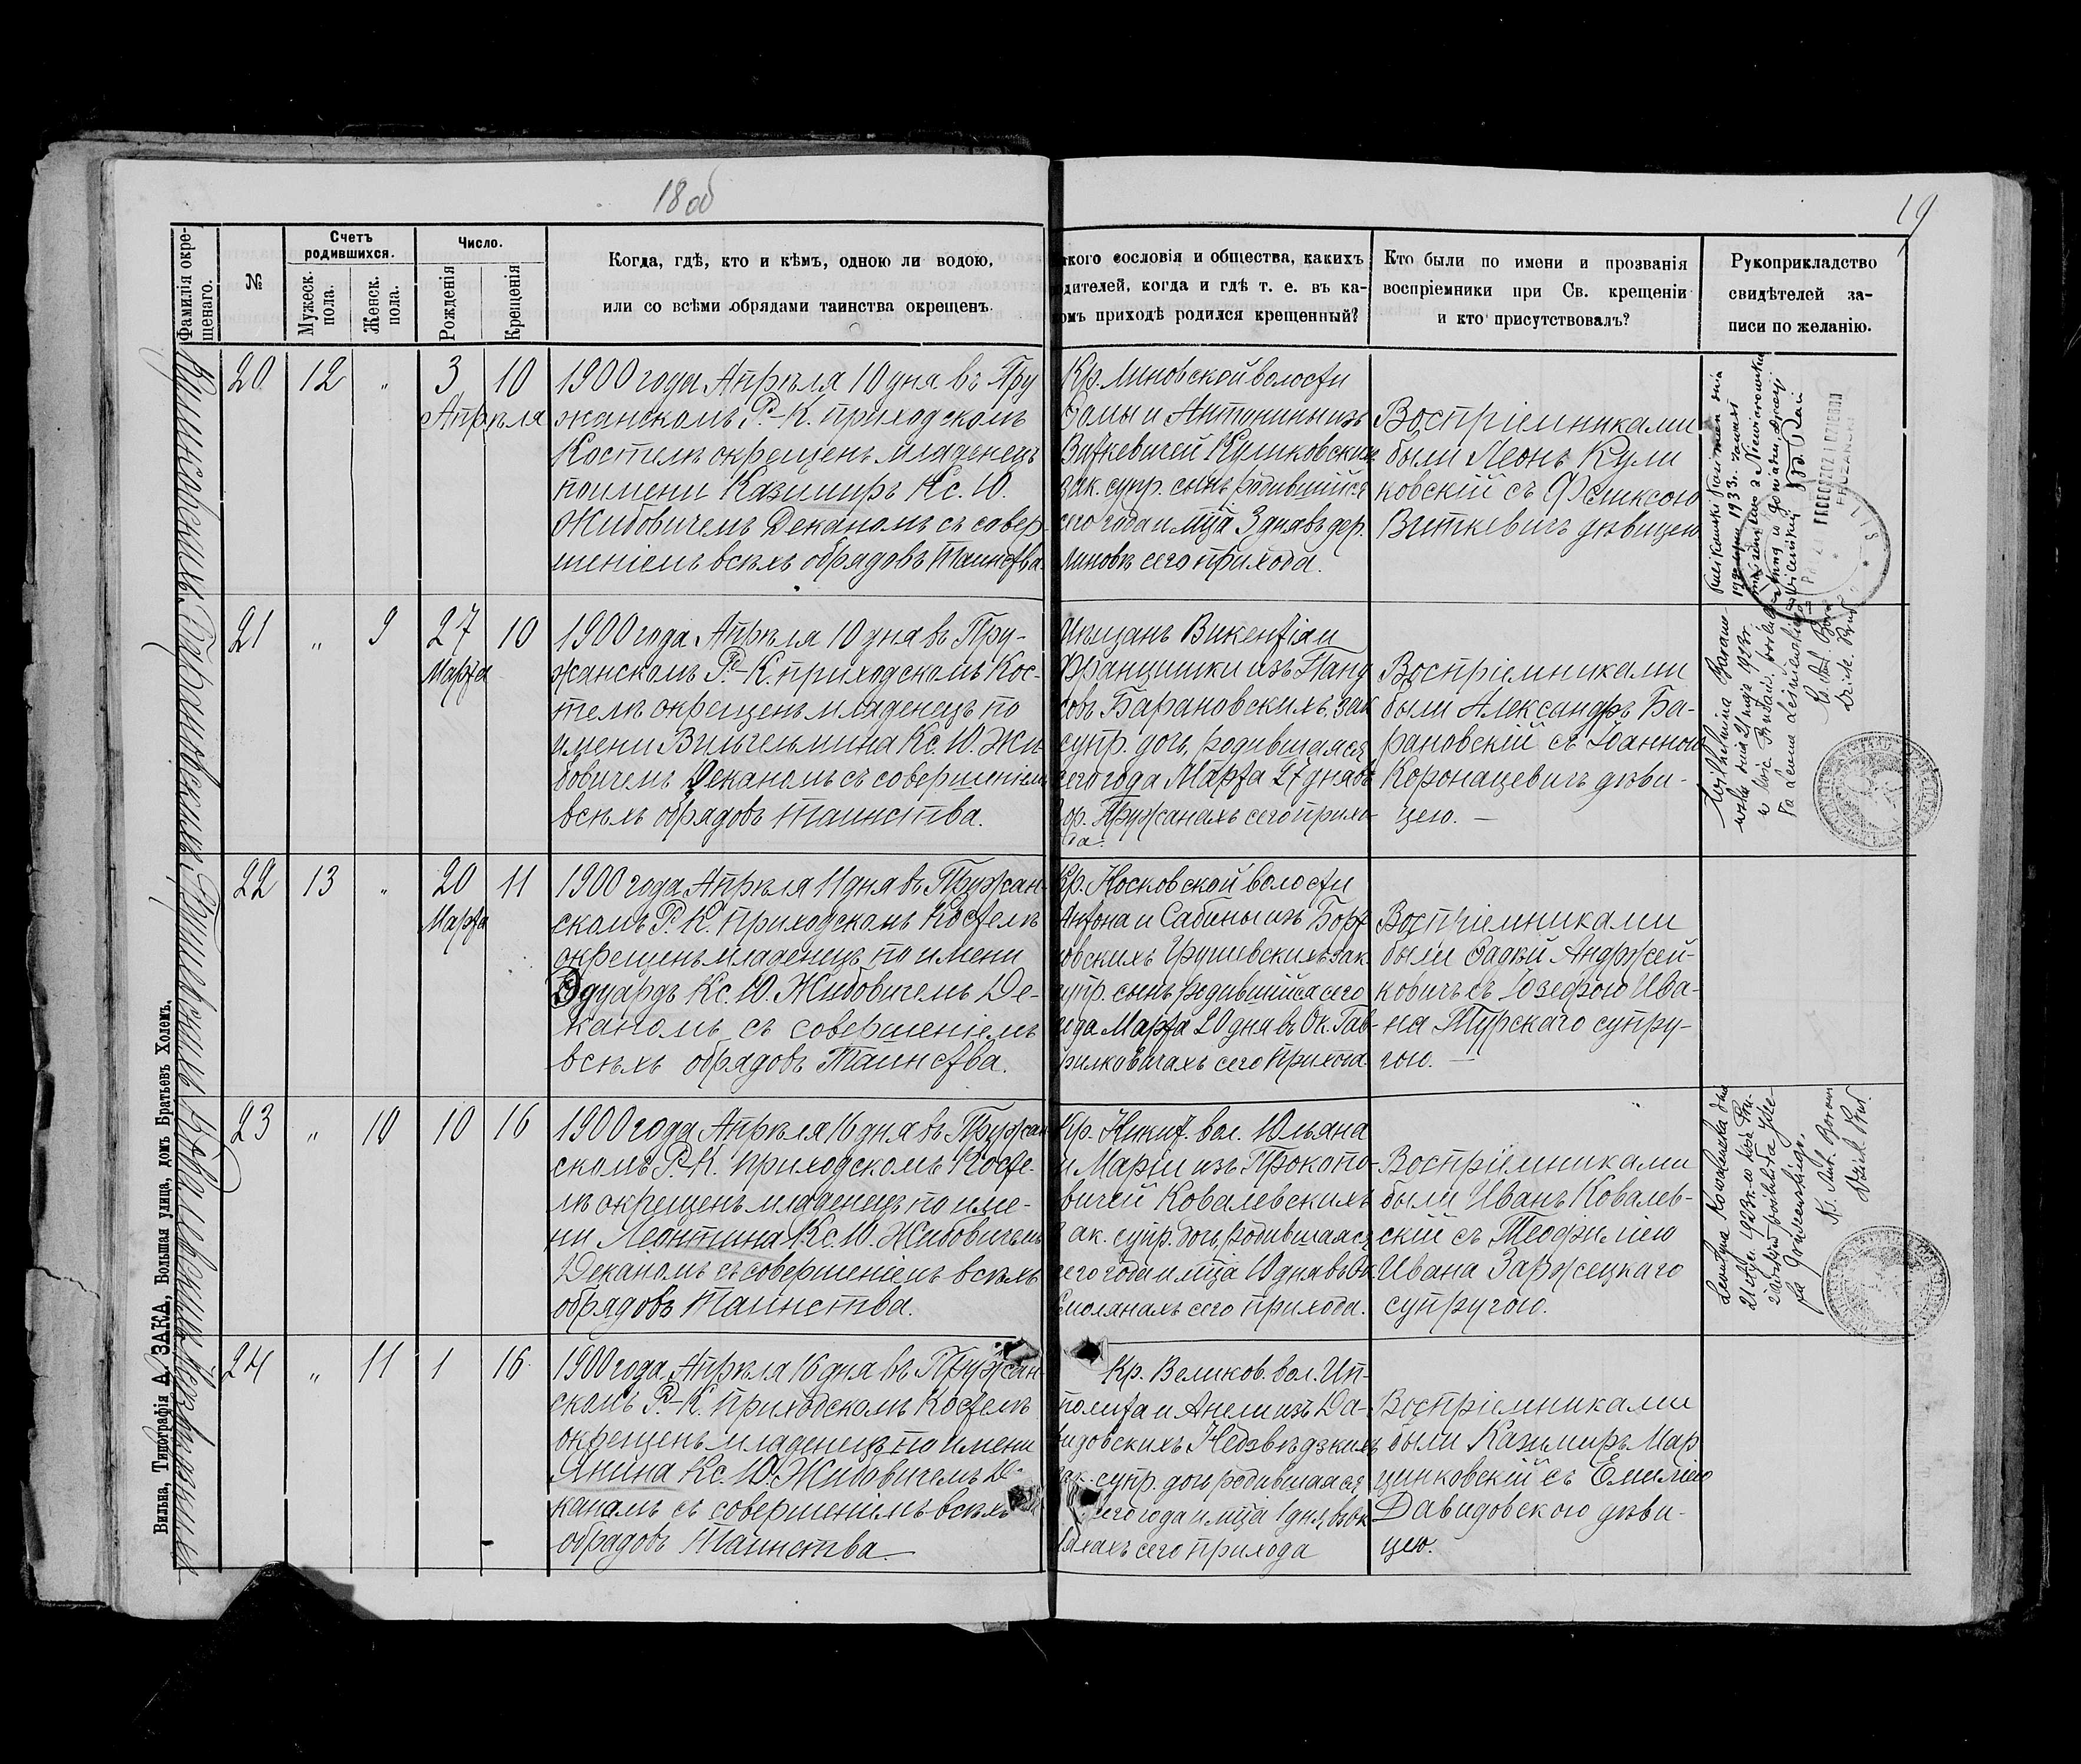 18 об
19
Фамилія окрещеннаго.
№
Счетъ родившихся.
Мужеск. пола.
Женск. пола.
Число.
Рожденія
Крещенія
Когда, гдѣ, кто и кѣмъ, одною ли водою,
или со всѣми обрядами таинства окрещенъ.
кого сословія и общества, какихъ
дителей, когда и гдѣ т. е. въ ка-
омъ приходѣ родился крещенный?
Кто были по имени и прозванія
воспріемники при Св. крещеніи
и кто присутствовалъ?
Рукоприкладство
свидѣтелей за-
писи по желанію.
Куликовскихъ
20 12 „ 3 10
Апрѣля
1900 года Апрѣля 10 дня въ Пру
жанскомъ Р.-К. приходскомъ
Костелѣ окрещенъ младенецъ
по имени Казимиръ Кс. Ю.
Жибовичемъ Деканомъ съ совер-
шеніемъ всѣхъ обрядовъ Таинства.
Кр. Линовской волости
Фомы и Антонины изъ
Виткевичей Куликовскихъ
зак. супр. сынъ, родившійся
сего года и мца 3 дня въ дер.
Линовѣ сего прихода.
Воспріемниками
были Леонъ Кули
ковскій съ Феликсою
Виткевичъ дѣвицею
Барановскихъ
21 „ 9 27 10
Марта
1900 года Апрѣля 10 дня въ Пру-
жанскомъ Р.-К. приходскомъ Кос-
телѣ окрещенъ младенецъ по
имени Вильгельмина Кс. Ю. Жи-
бовичемъ Деканомъ съ совершеніемъ
всѣхъ обрядовъ таинства.
Мѣщанъ Викентія и
Францишки изъ
Барановскихъ зак
супр. дочь, родившаяся
сего года Марта 27 дня въ
гор. Пружанахъ сего прихо-
да.
Воспріемниками
были Александръ Ба-
рановскій съ Іоанною
Коронацевичъ дѣви-
цею. —
Wilhelmina Barano-
22 13 „ 20 11
Марта
1900 года Апрѣля 11 дня въ Пружан-
скомъ Р. К. приходскомъ Костелѣ
окрещенъ младенецъ по имени
Эдуардъ Кс. Ю. Жибовичемъ Де-
каномъ съ совершеніемъ
всѣхъ обрядовъ Таинства.
Кр. Носковской волости
Антона и Сабины изъ Борт
новскихъ Грушевскихъ зак.
супр. сынъ родившійся сего
года Марта 20 дня въ Ок. Гав-
рилковичахъ сего прихода.
Воспріемниками
были Фадей Анджей-
ковичъ съ Іозефою Ива-
на Турскаго супру-
гою. —
Ковалевскихъ
23 „ 10 10 16
1900 года Апрѣля 16 дня въ Пружан
скомъ Р.-К. приходскомъ Косте-
лѣ окрещенъ младенецъ по име-
ни Леонтина Кс. Ю. Жибовичемъ
Деканомъ съ совершеніемъ всѣхъ
обрядовъ Таинства.
Кр. вол. Юльяна
и Маріи изъ Прокопо-
вичей Ковалевскихъ
зак. супр. дочь, родившаяся
сего года и мца 10 дня въ Ок
Смолянахъ сего прихода.
Воспріемниками
были Иванъ Ковалев-
скій съ Теофилією
Ивана Заржецкаго
супругою.
Leontyna Kowalewska
24 „ 11 1 16
1900 года Апрѣля 16 дня въ Пружан-
скомъ Р.-К. приходскомъ Костелѣ
окрещенъ младенецъ по имени
Янина Кс. Ю. Жибовичемъ Де-
каномъ съ совершеніемъ всѣхъ
обрядовъ Таинства.
Кр. Великов. вол. Ип-
полита и Анели изъ Да-
видовскихъ Недзвѣдзкихъ
зак. супр. дочь родившаяся
сего года и мца 1 дня въ ок
сего прихода
Воспріемниками
были Казимиръ Мар
цинковскій съ Емилією
Давидовскою дѣви-
цею.
Вильна, Типографія А. ЗАКА, Большая улица, домъ Братьевъ Холемъ.